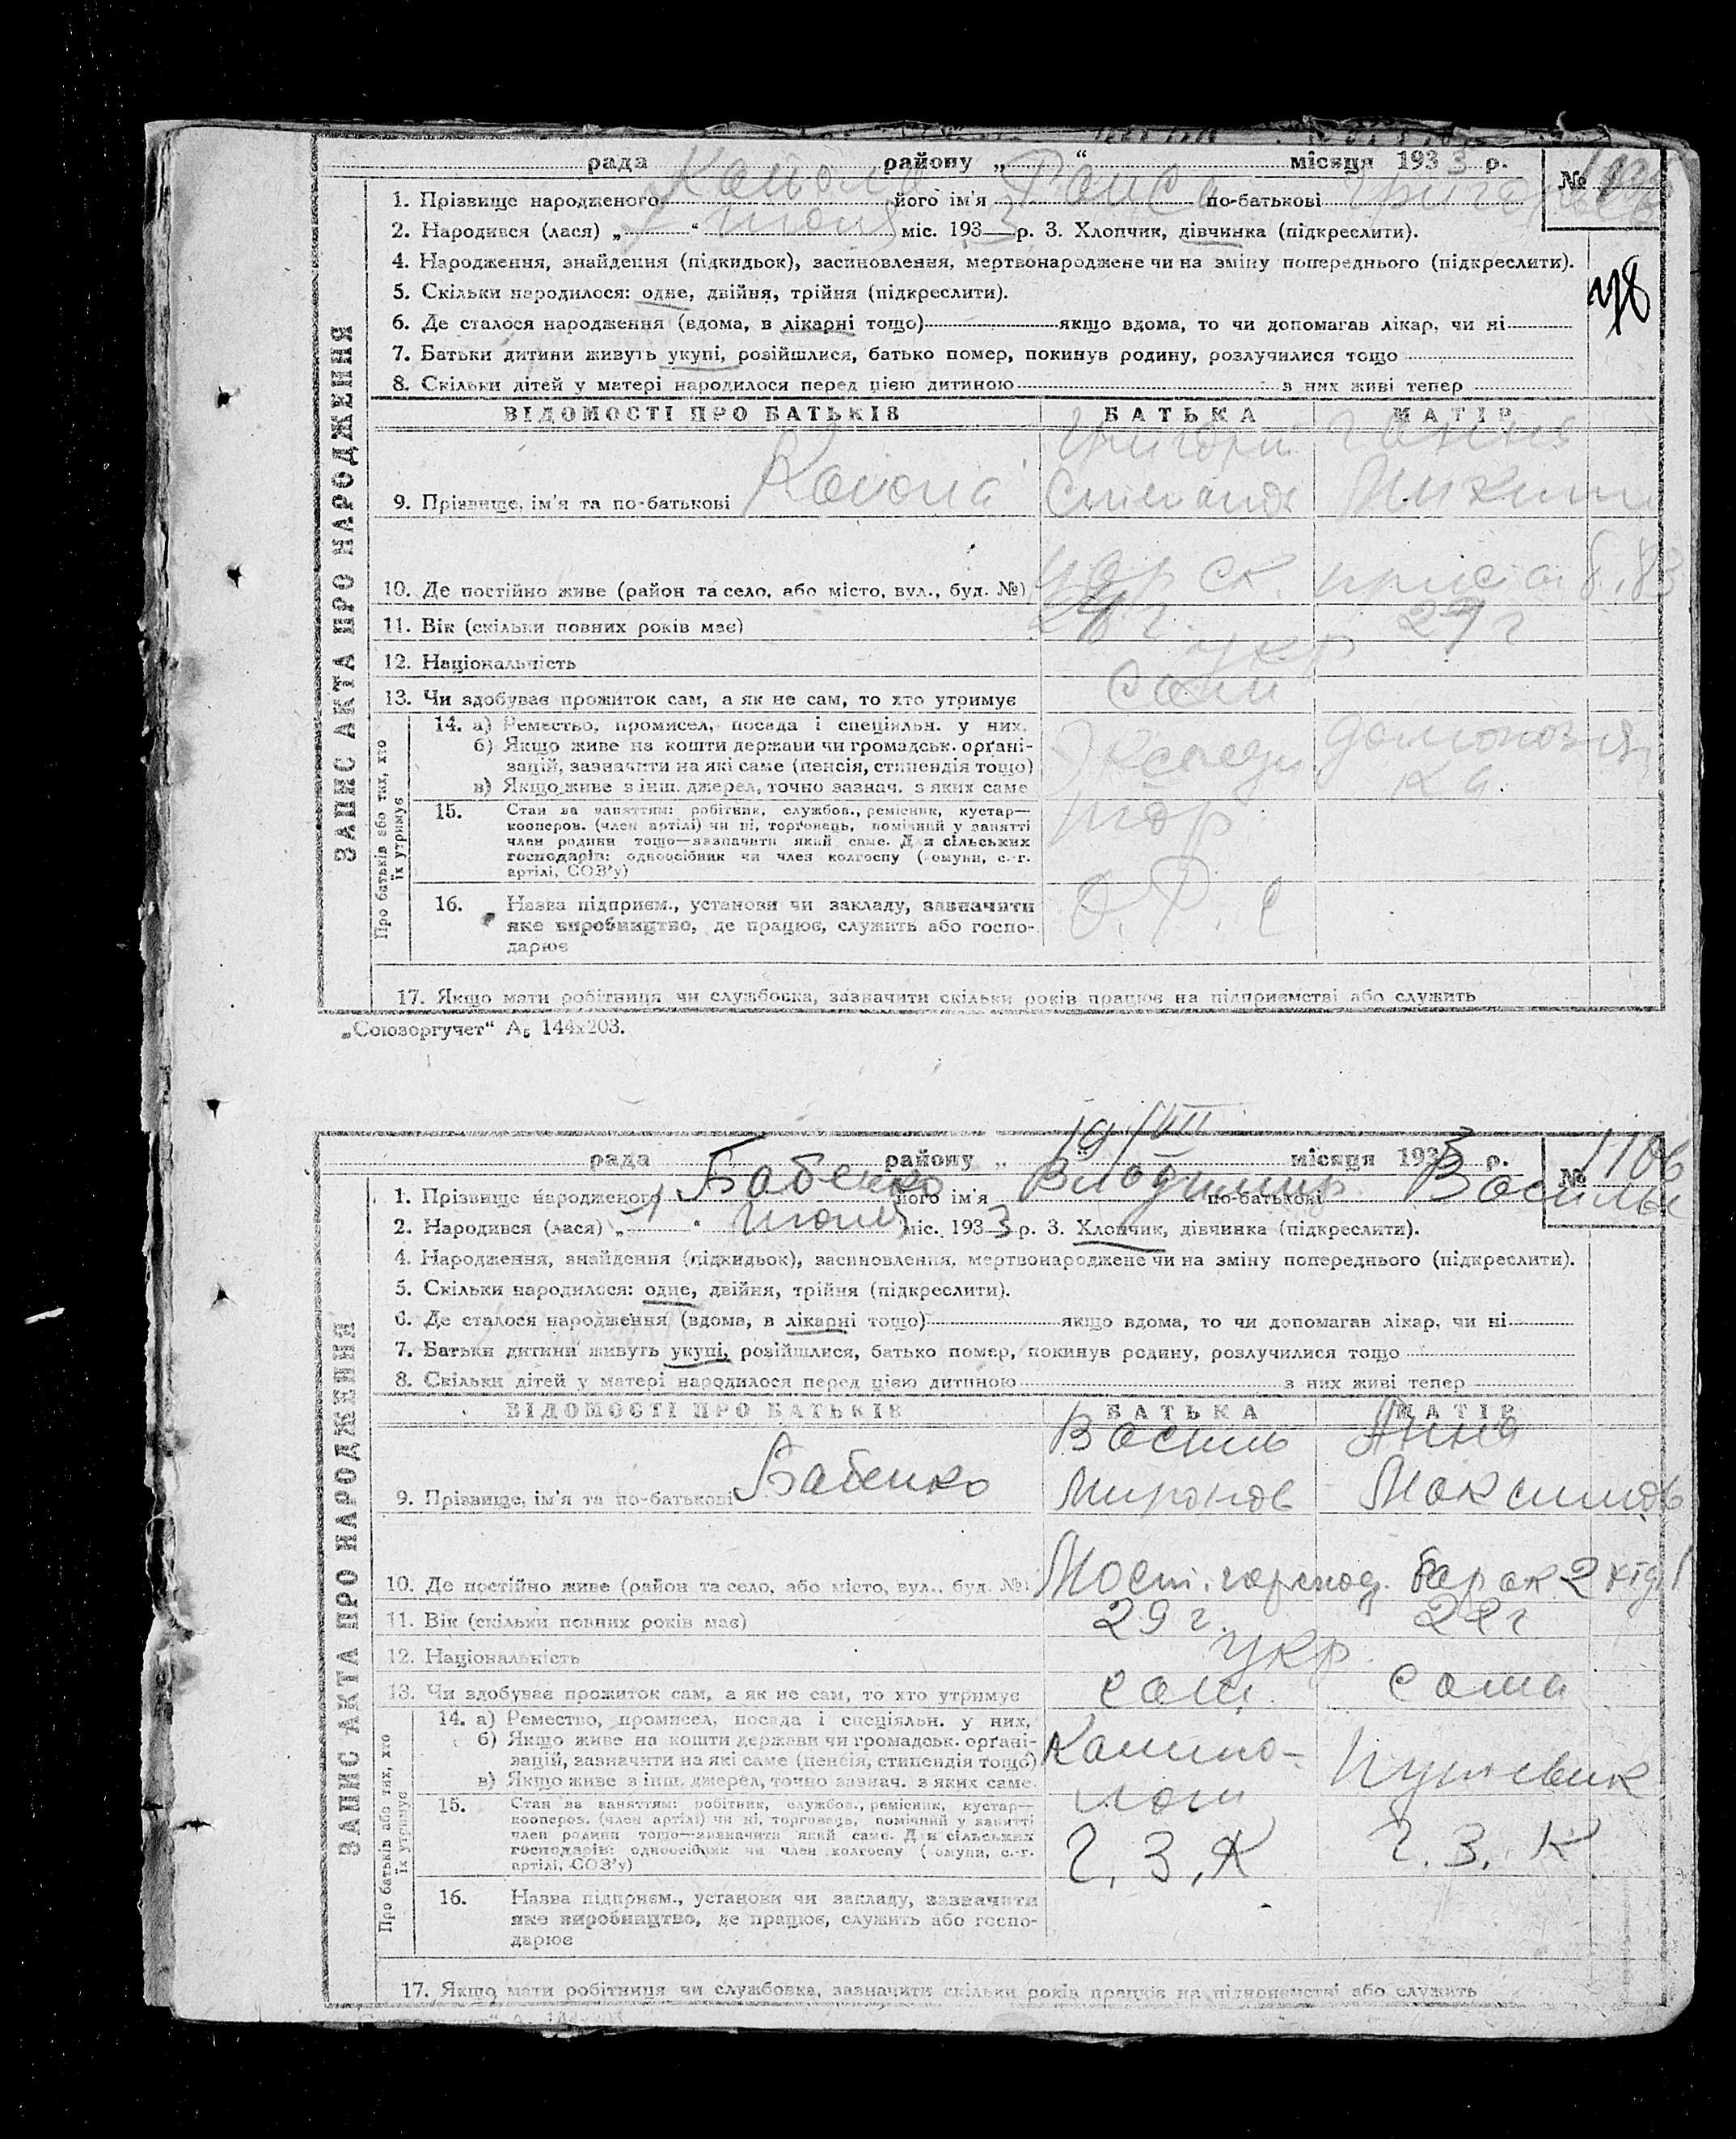 рада району „ “ місяця 1933 р.
№
1. Прізвище народженого його ім'я Раиса по-батькові
2. Народився (лася) „ “ июня міс. 193 3 р. 3. Хлопчик, дівчинка (підкреслити).
4. Народження, знайдення (підкидьок), засиновлення, мертвонароджене чи на зміну попереднього (підкреслити).
5. Скільки народилося: одне, двійня, трійня (підкреслити).
6. Де сталося народження (вдома, в лікарні тощо) якщо вдома, то чи допомагав лікар, чи ні
7. Батьки дитини живуть укупі, розійшлися, батько помер, покинув родину, розлучилися тощо
8. Скільки дітей у матері народилося перед цією дитиною з них живі тепер
ЗАПИС АКТА ПРО НАРОДЖЕННЯ
ВІДОМОСТІ ПРО БАТЬКІВ БАТЬКА МАТІР
Григорий Ганна
9. Прізвище, ім'я та по-батькові
10. Де постійно живе (район та село, або місто, вул., буд. №)
11. Вік (скільки повних років має) 29 г
12. Національність укр
13. Чи здобуває прожиток сам, а як не сам, то хто утримує сам
Про батьків або тих, хто їх утримує
14. а) Ремество, промисел, посада і спеціяльн. у них.
б) Якщо живе на кошти держави чи громадськ. орґані-
зацій, зазначити на які саме (пенсія, стипендія тощо)
в) Якщо живе з інш. джерел, точно зазнач. з яких саме
15. Стан за заняттям: робітник, службов., ремісник, кустар—
кооперов. (член артілі) чи ні, торговець, помічний у занятті
член родини тощо—зазначити який саме. Для сільських
господарів: одноосібник чи член колгоспу (комуни, с.-г.
артілі, СОЗ'у)
16. Назва підприєм., установи чи закладу, зазначити
яке виробництво, де працює, служить або госпо-
дарює
17. Якщо мати робітниця чи службовка, зазначити скільки років працює на підприємстві або служить
„Союзоргучет“ А5 144х203.
19/VII
рада району „ “ місяця 1933 р.
№ 1106
1. Прізвище народженого Бабенко його ім'я Владимир по-батькові Василье
2. Народився (лася) „1“ июня міс. 193 3 р. 3. Хлопчик, дівчинка (підкреслити).
4. Народження, знайдення (підкидьок), засиновлення, мертвонароджене чи на зміну попереднього (підкреслити).
5. Скільки народилося: одне, двійня, трійня (підкреслити).
6. Де сталося народження (вдома, в лікарні тощо) якщо вдома, то чи допомагав лікар, чи ні
7. Батьки дитини живуть укупі, розійшлися, батько помер, покинув родину, розлучилися тощо
8. Скільки дітей у матері народилося перед цією дитиною з них живі тепер
ЗАПИС АКТА ПРО НАРОДЖЕННЯ
ВІДОМОСТІ ПРО БАТЬКІВ БАТЬКА МАТІР
Василь Анна
9. Прізвище, ім'я та по-батькові Бабенко Миронов Максимов
10. Де постійно живе (район та село, або місто, вул., буд. №) барак 2
11. Вік (скільки повних років має) 29 г. 22 г
12. Національність укр.
13. Чи здобуває прожиток сам, а як не сам, то хто утримує сам сама
Про батьків або тих, хто їх утримує
14. а) Ремество, промисел, посада і спеціяльн. у них,
б) Якщо живе на кошти держави чи громадськ. орґані-
зацій, зазначити на які саме (пенсія, стипендія тощо)
в) Якщо живе з інш. джерел, точно зазнач. з яких саме
15. Стан за заняттям: робітник, службов., ремісник, кустар—
кооперов. (член артілі) чи ні, торговець, помічний у занятті
член родини тощо—зазначити який саме. Для сільських
господарів: одноосібник чи член колгоспу (комуни, с.-г.
артілі, СОЗ'у)
Г. З. К Г. З. К
16. Назва підприєм., установи чи закладу, зазначити
яке виробництво, де працює, служить або госпо-
дарює
17. Якщо мати робітниця чи службовка, зазначити скільки років працює на підприємстві або служить